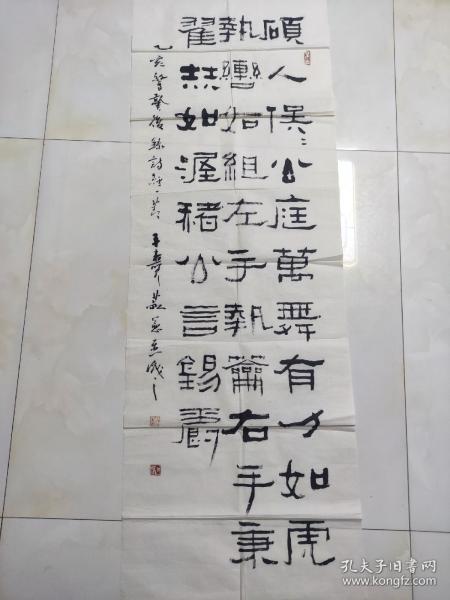 碩人俣〻公庭萬舞有力如虎
執轡如組左手執籥右手秉
翟赫如渥赭公言錫爵
乙亥驚蟄後録詩經一節
孔夫子旧书网
www.kongfz.com